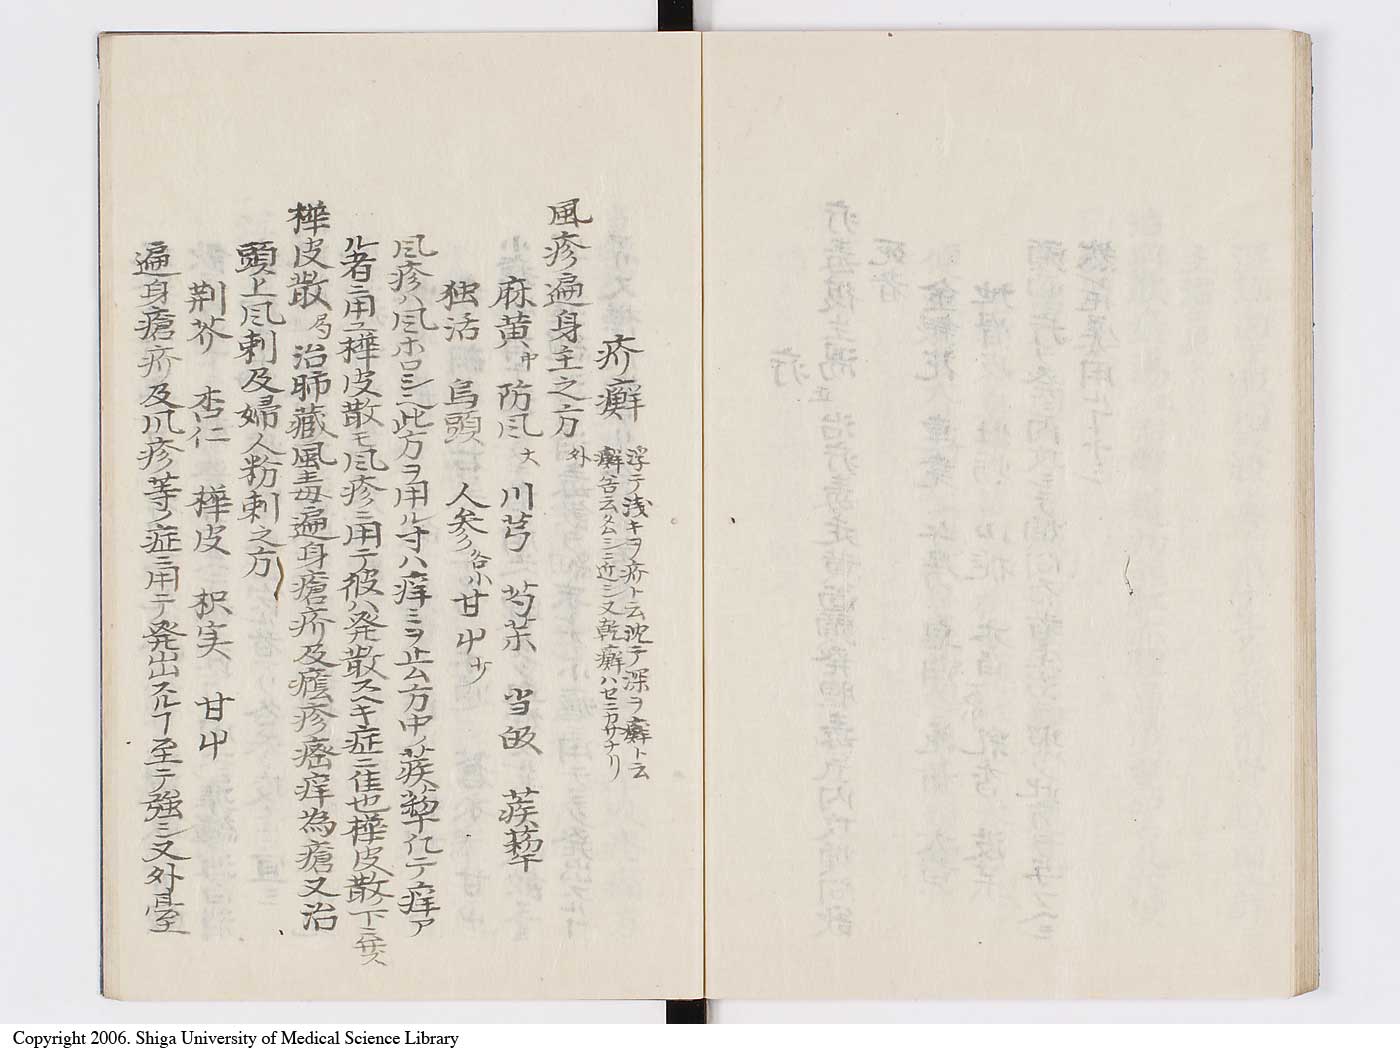 疥癬 浮テ浅キヲ疥ト云沈テ深ヲ癬ト云
癬俗云タムシニ近シ又乾癬ハセニカサナリ
風疹遍身主之方 外
麻黄 中 防風 大 川芎 芍薬 当皈 蒺䔧
独活 烏頭 人参 各小 甘屮 少
風疹ハ風ホロシ也此方ヲ用ル寸ハ痒ミヲ止ム方中ノ蒺䔧ヒテ痒ア
ル者ニ用ユ樺皮散モ風疹ニ用テ彼ハ発散スヘキ症ニ佳也樺皮散ノ下ニ弁ス
樺皮散 局 治肺藏風毒遍身瘡疥及癮疹瘙痒為瘡又治
頭上風刺及婦人粉刺之方
荆芥 杏仁 樺皮 枳実 甘屮
遍身瘡疥及風疹等ノ症ニ用テ発出スルヿ至テ強シ又外臺
Copyright 2006. Shiga University of Medical Science Library